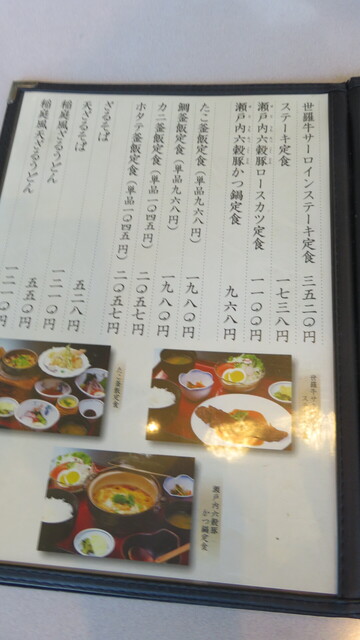 世羅牛サーロインステーキ定食 三五二〇円
ステーキ定食 一七三八円
瀬戸内六穀豚ロースカツ定食 一一〇〇円
瀬戸内六穀豚かつ鍋定食 九六八円
たこ釜飯定食(単品九六八円) 一九八〇円
鯛釜飯定食(単品九六八円) 一九八〇円
カニ釜飯定食(単品一〇四五円) 二〇五七円
ホタテ釜飯定食(単品一〇四五円) 二〇五七円
ざるそば 五二八円
天ざるそば 一二一〇円
稲庭風ざるうどん 五五〇円
稲庭風天ざるうどん 一二一〇円
世羅牛サ
たこ釜飯定食
瀬戸内六穀豚
かつ鍋定食